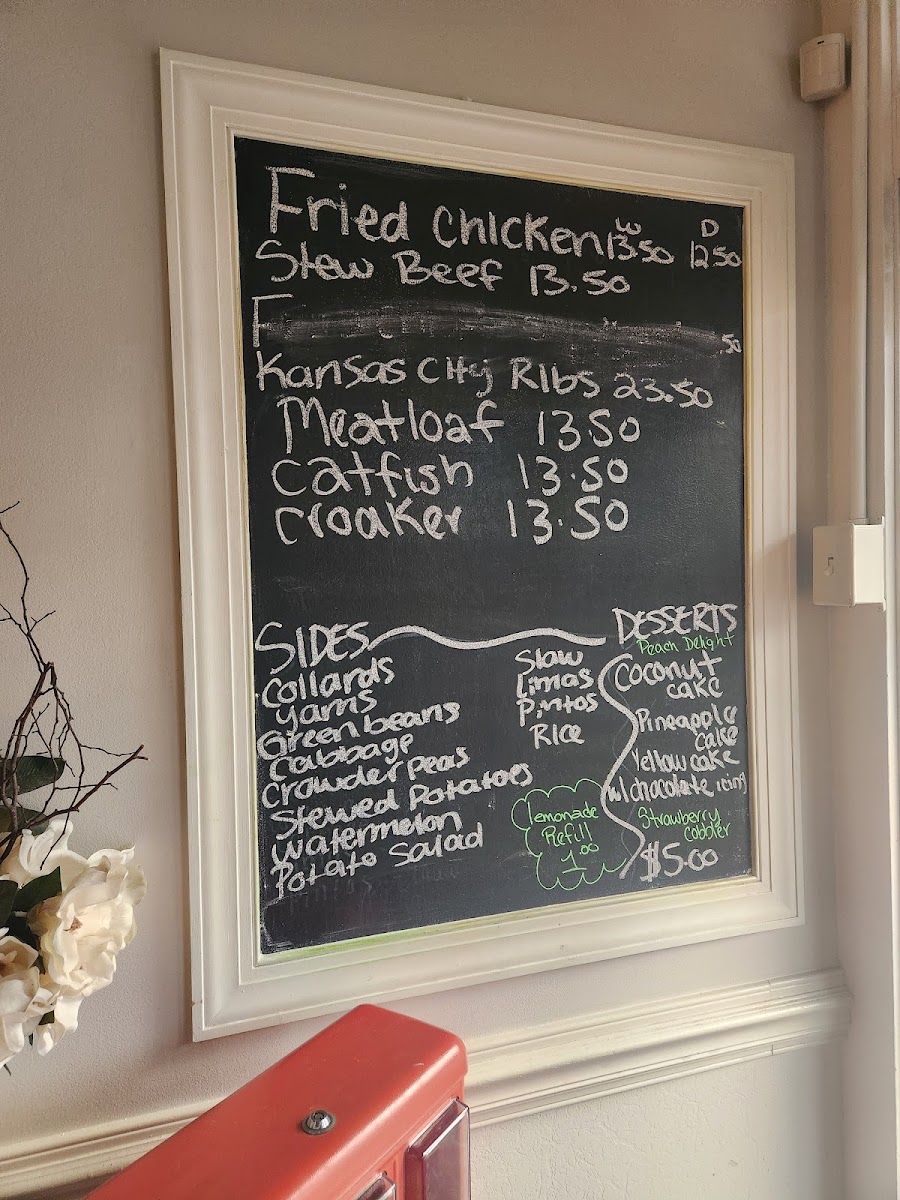 W D
Fried Chicken 13.50 12.50
Stew Beef 13.50
F .50
Kansas City Ribs 23.50
Meatloaf 13.50
Catfish 13.50
Croaker 13.50
SIDES
Collards
Yams
Green beans
Cabbage
Crowder Peas
Stewed Potatoes
Watermelon
Potato Salad
Slaw
Limas
Pintos
Rice
lemonade
Refill
1.00
DESSERTS
Peach Delight
Coconut
cake
Pineapple
cake
Yellow cake
w/chocolate icing
Strawberry
cobbler
$5.00